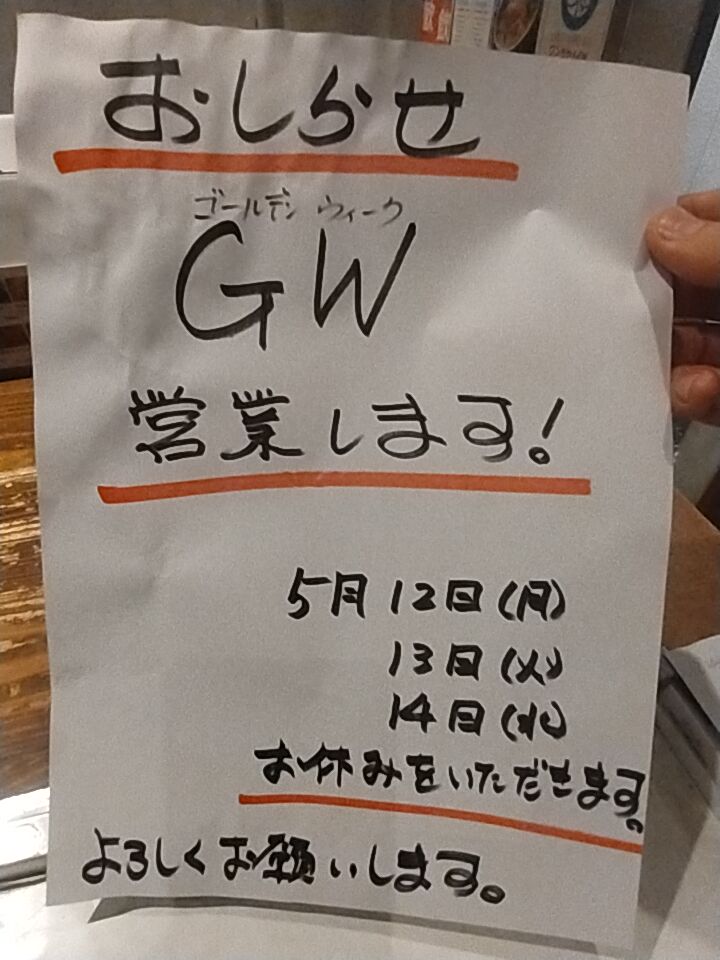 おしらせ
ゴールデン ウィーク
GW
営業します!
5月12日(月)
13日(火)
14日(水)
お休みをいただきます。
よろしくお願いします。